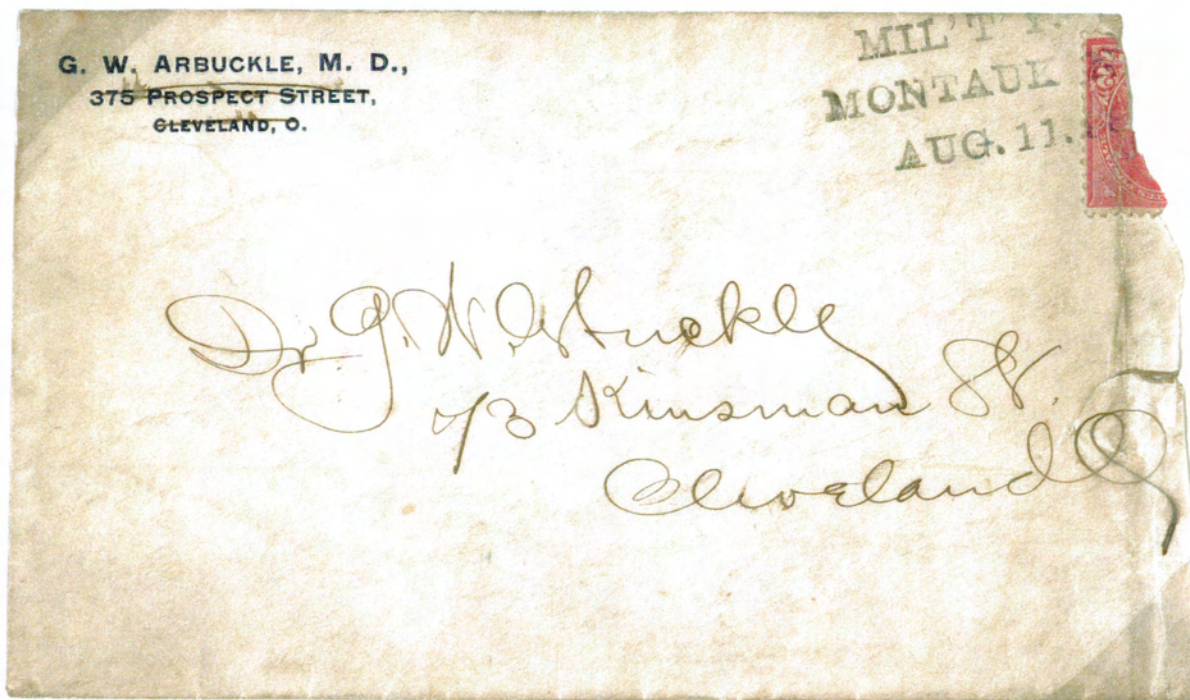 G. W. ARBUCKLE, M. D.,
375 PROSPECT STREET,
CLEVELAND, O.
MIL'T'Y.
MONTAUK
AUG. 11.
2
Dr. G. W. Arbuckle
73 Kinsman St.
Cleveland O